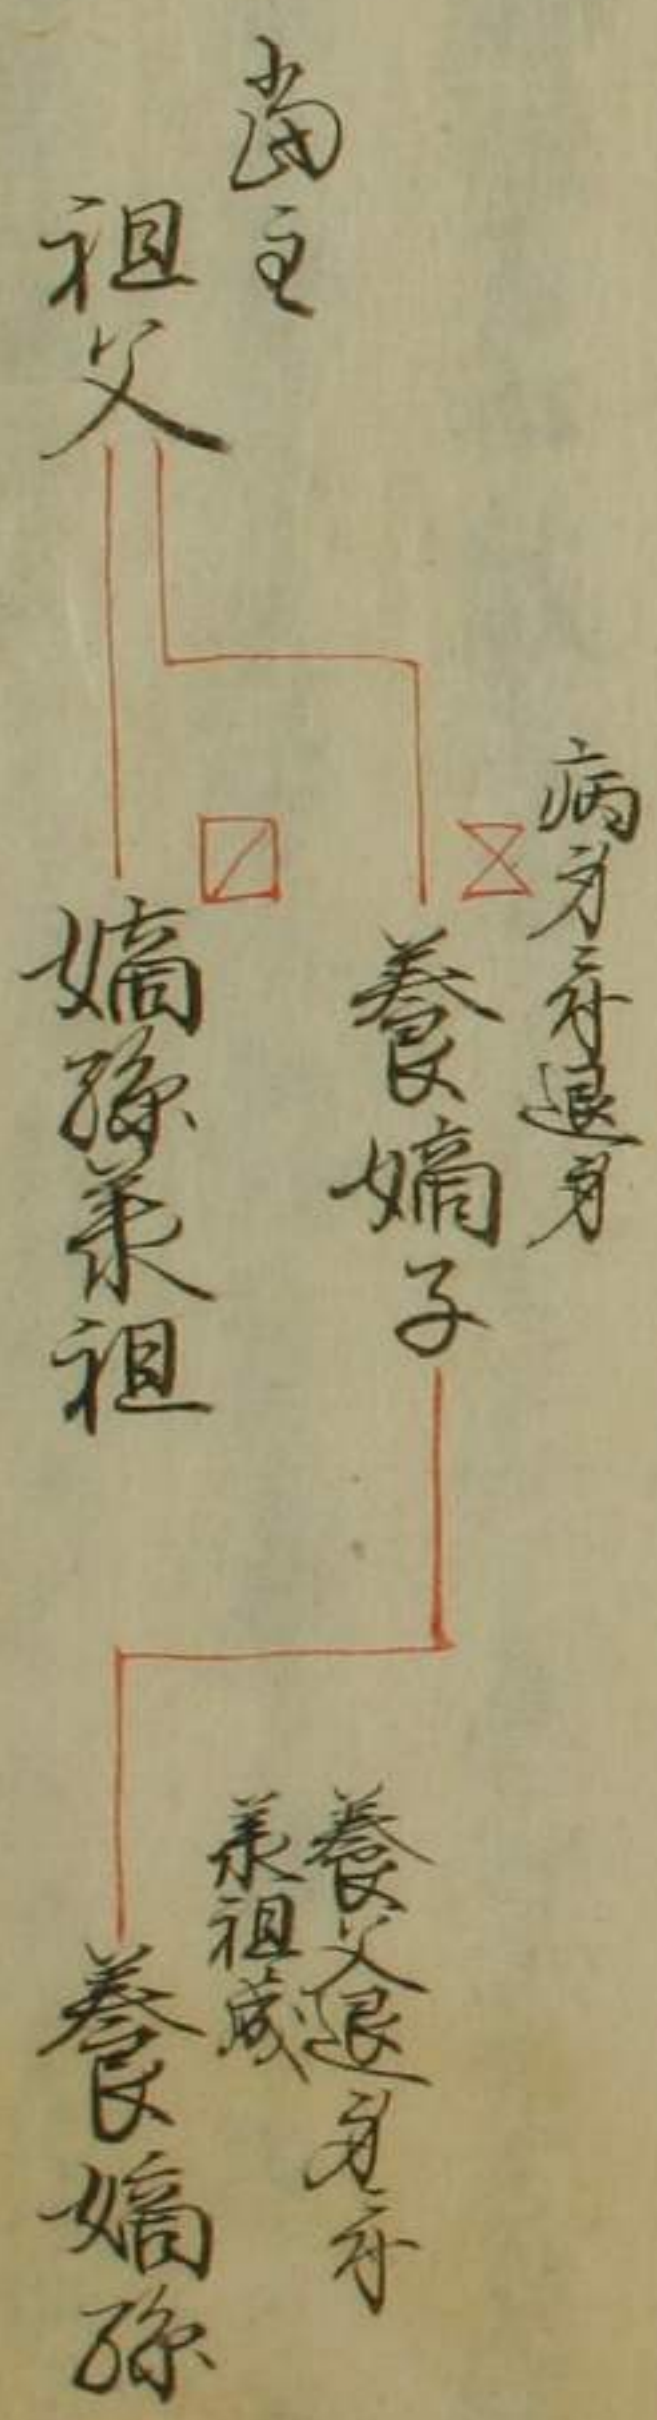 當主
祖父
病身ニ付退身
養嫡子
嫡孫承祖
養父退身ニ付
承祖
養嫡孫